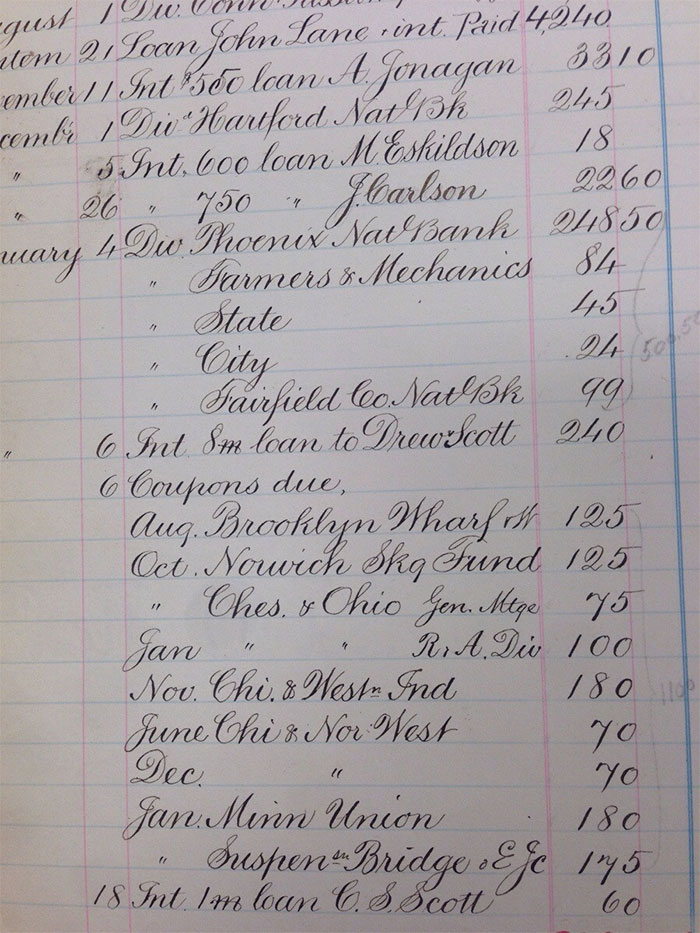 gust 1 Div. Conn
tem 21 Loan John Lane & int. Paid 4,240
ember 11 Int $550 loan A. Jonagan 33 10
cembr 1 Div Hartford Natl Bk 245
" 5 Int. 600 loan M. Eskildson 18
" 26 " 750 " J. Carlson 22 60
nuary 4 Div. Phoenix Natl Bank 248 50
" Farmers & Mechanics 84
" State 45
" City 24
" Fairfield Co. Natl Bk 99
" 6 Int 8m loan to Drew & Scott 240
6 Coupons due,
Aug. Brooklyn Wharf 125
Oct. Norwich Skg Fund 125
" Ches. & Ohio Gen. Mtge 75
Jan " " R & A. Div 100
Nov. Chi. & Westn Ind 180
June Chi & Nor. West 70
Dec. " 70
Jan. Minn Union 180
" Suspensn Bridge & E Jc 175
18 Int. 1m loan C. S. Scott 60